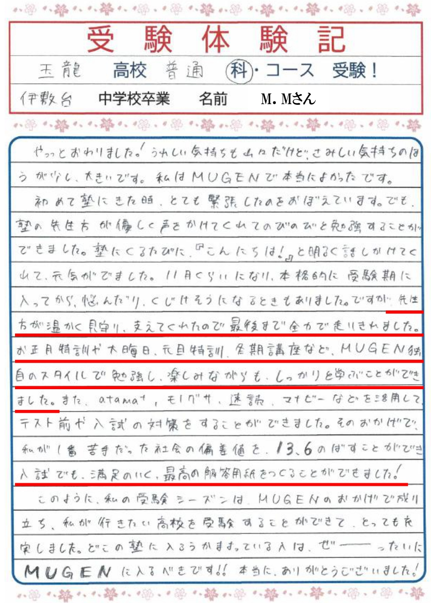 受験体験記
玉龍 高校 普通 科・コース 受験！
伊敷台 中学校卒業 名前 M.Mさん
やっとおわりました！うれしい気持ちも山々だけど、さみしい気持ちのほ
うが少し、大きいです。私はMUGENで本当によかったです。
初めて塾にきた時、とても緊張したのをおぼえています。でも、
塾の先生方が優しく声をかけてくれてのびのびと勉強することが
できました。塾にくるたびに、『こんにちは！』と明るく話しかけてく
れて、元気がでました。11月くらいになり、本格的に受験期に
入ってから、悩んだり、くじけそうになるときもありました。ですが、先生
方が温かく見守り、支えてくれたので最後まで全力で走りきれました。
お正月特訓や大晦日、元旦特訓、冬期講座など、MUGEN独
自のスタイルで勉強し、楽しみながらも、しっかりと学ぶことができ
ました。また、atama+、モノグサ、速読、マナビーなどを活用して、
テスト前や入試の対策をすることができました。そのおかげで、
私が1番苦手だった社会の偏差値を、13.6のばすことができ
入試でも、満足のいく、最高の解答用紙をつくることができました！
このように、私の受験シーズンは、MUGENのおかげで成り
立ち、私が行きたい高校を受験することができて、とっても充
実しました。どこの塾に入ろうかまよっている人は、ぜーーったいに
MUGENに入るべきです!! 本当に、ありがとうございました！